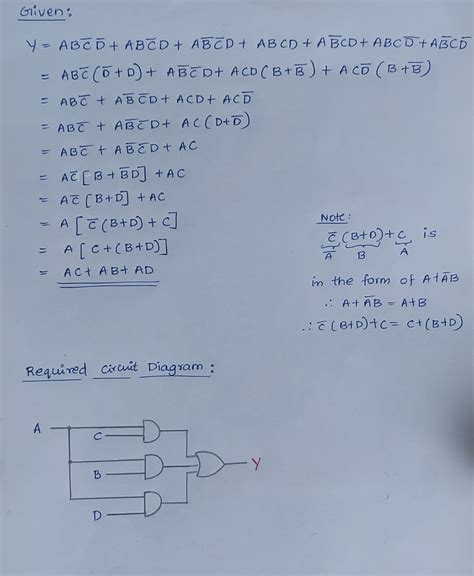 Given:
Y = ABC̅D̅ + ABC̅D + AB̅C̅D + ABCD + AB̅CD + ABCD̅ + AB̅CD̅
= ABC̅(D̅+D) + AB̅C̅D + ACD(B+B̅) + ACD̅(B+B̅)
= ABC̅ + AB̅C̅D + ACD + ACD̅
= ABC̅ + AB̅C̅D + AC(D+D̅)
= ABC̅ + AB̅C̅D + AC
= AC̅[B+B̅D] + AC
= AC̅[B+D] + AC
= A[C̅(B+D)+C]
= A[C+(B+D)]
= AC + AB + AD
Note:
C̅(B+D)+C is
A̅ B A
in the form of A+A̅B
∴ A+A̅B = A+B
∴ C̅(B+D)+C = C+(B+D)
Required Circuit Diagram:
A
C
B
Y
D